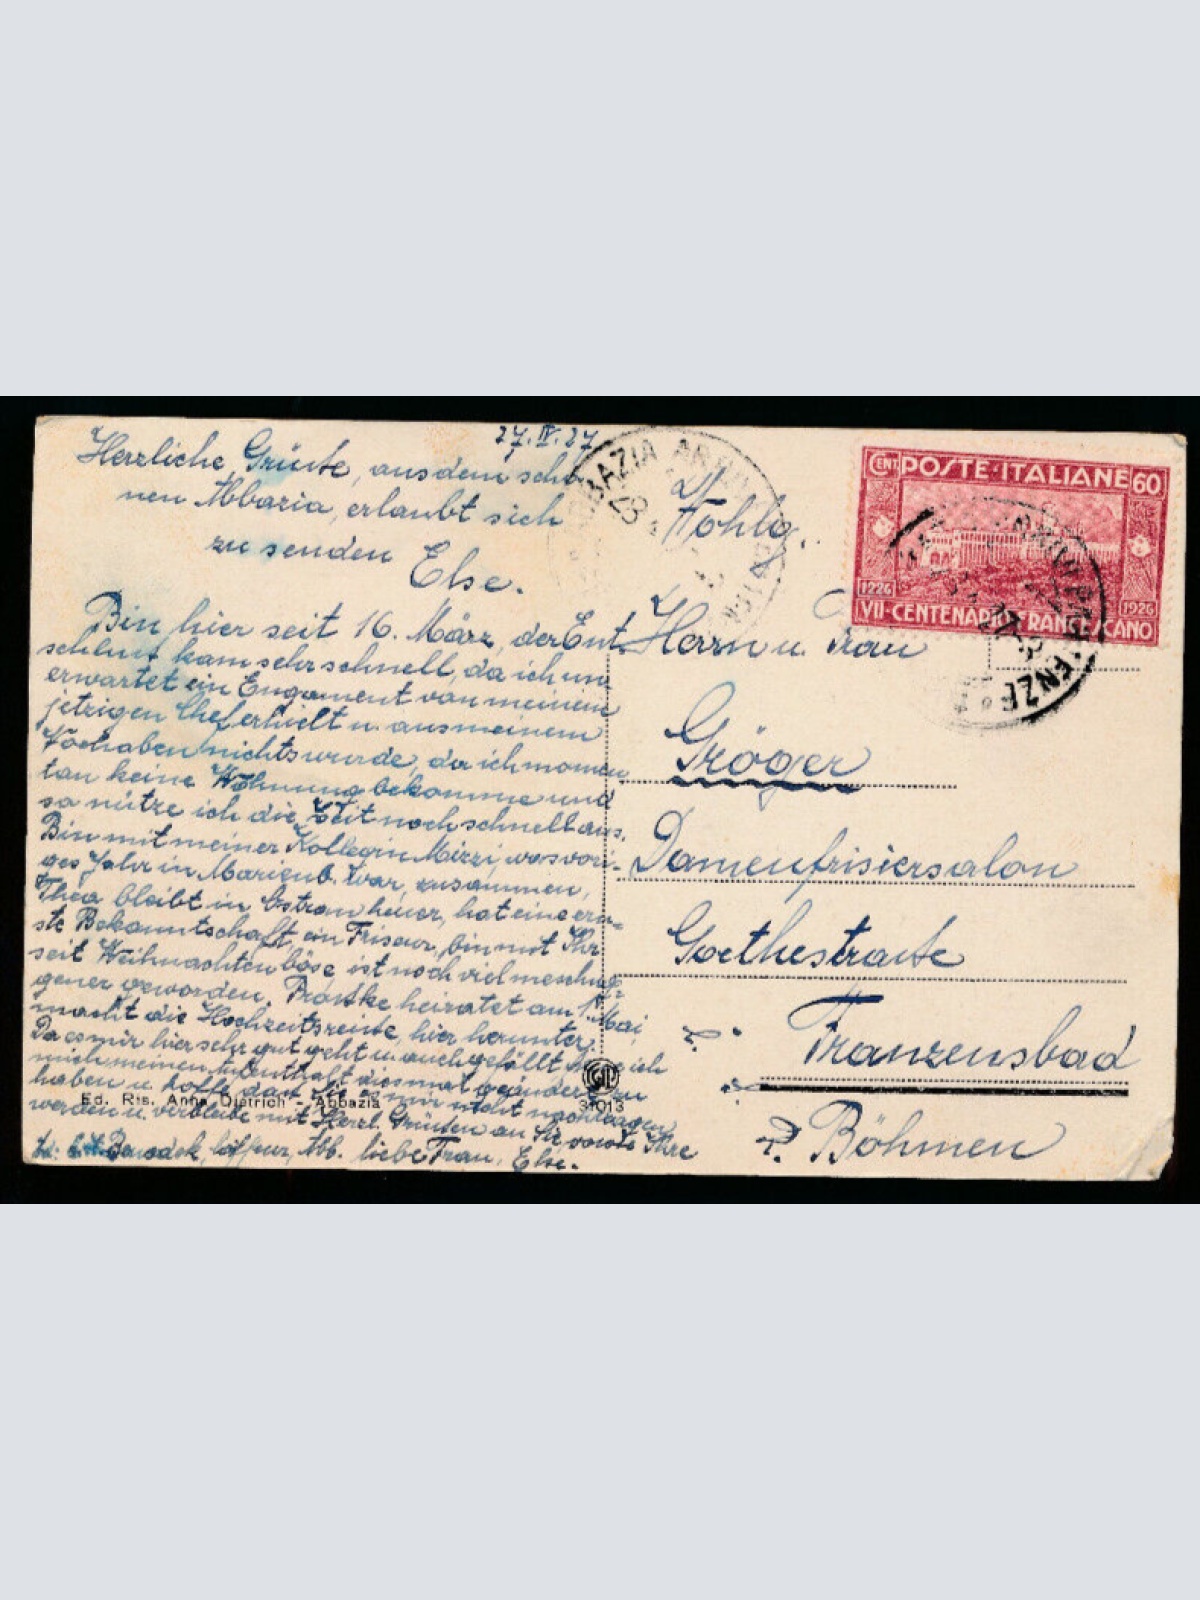 27.IV.27
Herzliche Grüsse, aus dem schö-
nen Abbazia, erlaubt sich
zu senden
Else.
Bin hier seit 16. März, der Ent
schluss kam sehr schnell, da ich un
erwartet ein Engament von meinem
jetzigen Chef erhielt u. aus meinem
Vorhaben nichts wurde, da ich momen
tan keine Wohnung bekomme und
so nütze ich die Zeit noch schnell aus.
Bin mit meiner Kollegin Mizzi, was vori-
ges Jahr in Marienb. war, zusammen,
Thea bleibt in heuer, hat eine ern-
ste Bekanntschaft, ein Friseur, bin mit Ihr
seit Weihnachten böse, ist noch viel meschug-
gener geworden. heiratet am 1. Mai,
macht die Hochzeitsreise, hier herunter.
Da es mir hier sehr gut geht u. auch gefällt ich
mich meinen Aufenthalt diesmal geändert zu
haben u. hoffe dass Sie es mir nicht nachtragen
werden u. verbleibe mit Herzl. Grüssen an Sie, Ihre
Coiffeur, Abb. liebe Frau, Else.
Ed. Ris. Anna Dietrich - Abbazia
31013
ABBAZIA
28
Wohlg.
Herrn u. Frau
Gröger
Damenfrisiersalon
Goethestrasse
Franzensbad
Böhmen
CENT POSTE·ITALIANE 60
1226 1926
VII·CENTENARIO FRANCESCANO